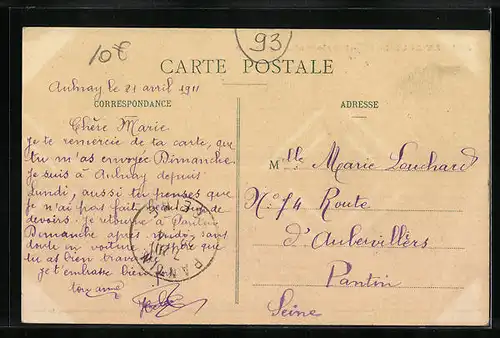 10€
93
CARTE POSTALE
Aulnay le 21 avril 1911
CORRESPONDANCE
ADRESSE
Chère Marie
Je te remercie de ta carte, que
tu m'as envoyée Dimanche
Je suis à Aulnay depuis
Lundi, aussi tu penses que
je n'ai pas fait beaucoup de
devoirs. Je retourne à Pantin
Dimanche après midi sans
doute en voiture. J'espère que
tu as bien
Je t'embrasse bien
ton amie
Mlle Marie Louchard
No 74 Route
d'Aubervilliers
Pantin
Seine
PANTIN